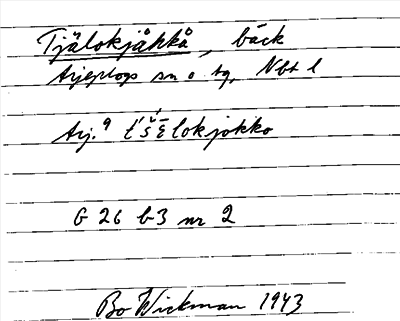 Tjälokjåkkå, bäck
Arjeplogs sn o tg, Nbt l
Arj. 9 t́'š́ēlokjokko
G 26 b3 nr 2
Bo Wickman 1943